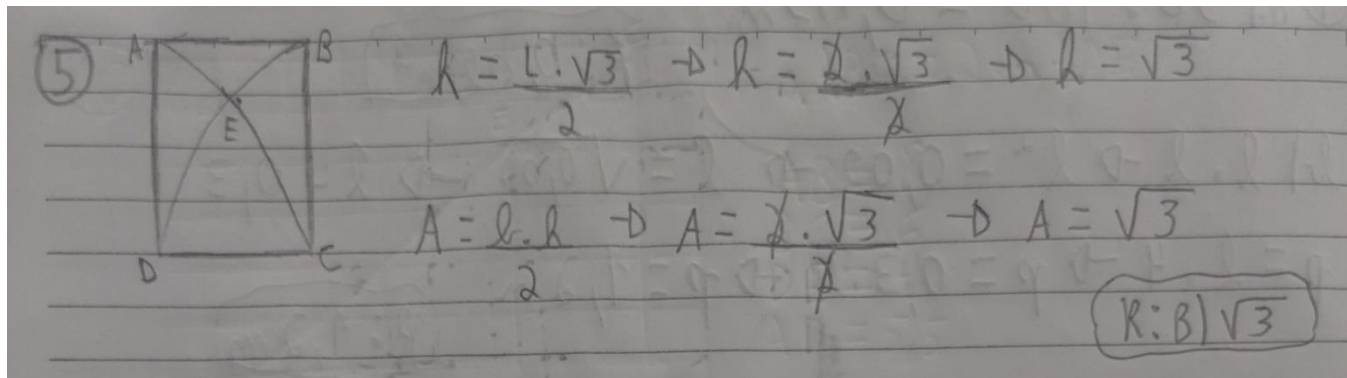 5 A B E D C
h = L.√3/2 → h = 2.√3/2 → h = √3
A = b.h/2 → A = 2.√3/2 → A = √3
R: B) √3